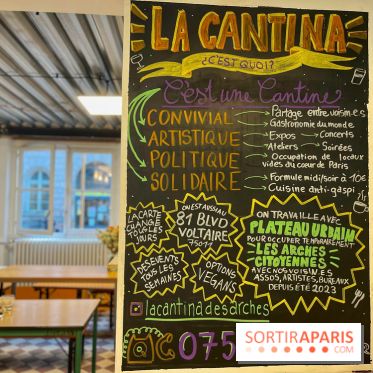 LA CANTINA
¿C'EST QUOI?
C'est une Cantine
CONVIVIAL
ARTISTIQUE
POLITIQUE
SOLIDAIRE
Partage entre voisin.e.s
Gastronomie du monde
Expos Concerts
Ateliers Soirées
Occupation de locaux
vides du cœur de Paris
Formule midi/soir à 10€
Cuisine anti-gaspi
LA CARTE
CHANGE
TOUS LES
JOURS
ON EST AUSSI AU
81 BLVD
VOLTAIRE
75011
DES EVENTS
TOUS LES
SEMAINES
OPTIONS
VEGANS
ON TRAVAILLE AVEC
PLATEAU URBAIN
POUR OCCUPER TEMPORAIREMENT
LES ARCHES
CITOYENNES
AVEC NOS VOISIN.ES
ASSOS, ARTISTES, BUREAUX
DEPUIS ÉTÉ 2023
lacantinadesarches
075
SORTIRAPARIS
.com